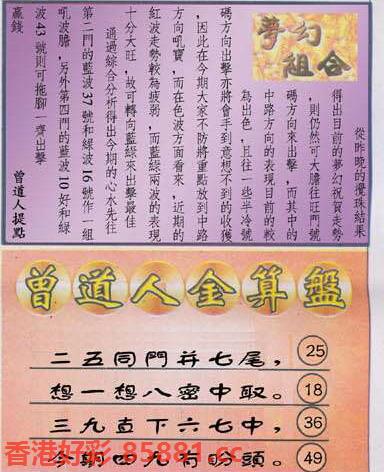 夢幻
組合
從昨晚的攪珠結果
得出目前的夢幻祝賀走勢
，則仍然可大膽往旺門號
碼方向來出擊，而其中的
中路方向的表現目前的較
為出色，且往一些半冷號
碼方向出擊亦將會手到意想不到的收獲
，因此在今期大家不防將重點放到中路
方向吼寶，而在色波方面看來，近期的
紅波走勢較為疲弱，而藍綠兩波的表現
十分大旺，故可轉向藍綠來出擊最佳
通過綜合分析得出今期的心水先往
第二門的藍波37號和綠波16號作一組
吼波膽，另外第四門的藍波10好和綠
波43號則可拖腳一齊出擊
贏錢
曾道人提點
曾道人金算盤
二五同門并七尾， 25
想一想八密中取。 18
三九直下六七中， 36
今期四九有吩頭。 49
香港好彩 85881.cc